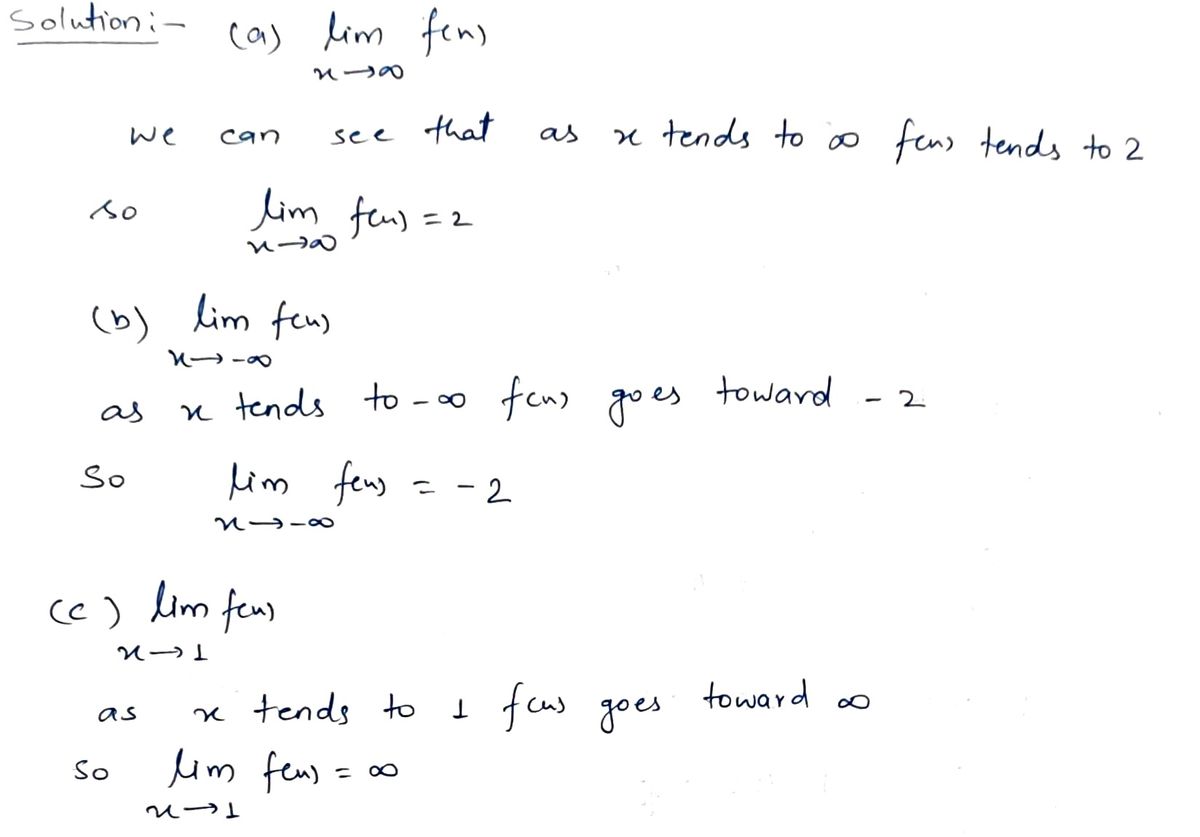 Solution:- (a) lim f(x)
x→∞
we can see that as x tends to ∞ f(x) tends to 2
so lim f(x) = 2
x→∞
(b) lim f(x)
x→-∞
as x tends to -∞ f(x) goes toward -2
So lim f(x) = -2
x→-∞
(c) lim f(x)
x→1
as x tends to 1 f(x) goes toward ∞
so lim f(x) = ∞
x→1